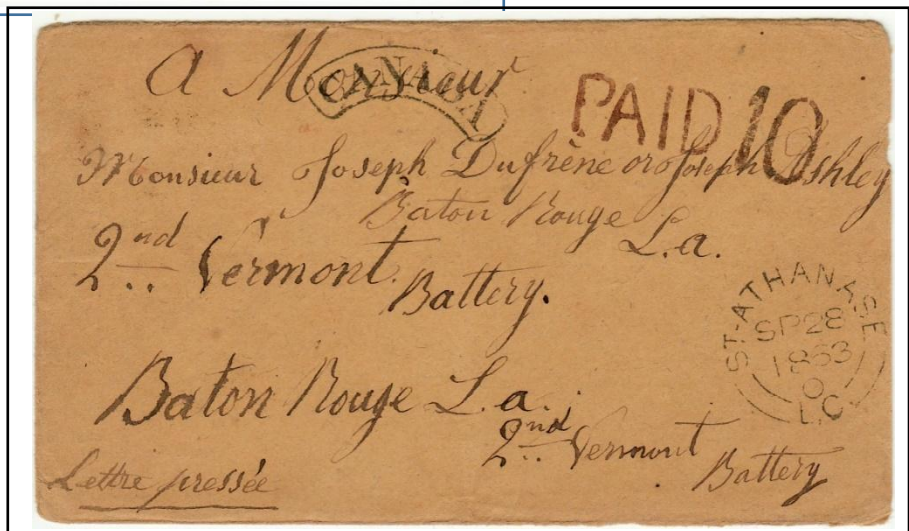 A Monsieur
CANADA
PAID 10
Monsieur Joseph Dufrène or Joseph Ashley
Baton Rouge
L.a.
2nd Vermont
Battery.
ST-ATHANASE
SP 28
1863
L.C
Baton Rouge L.a.
2nd Vermont
Battery
Lettre pressée